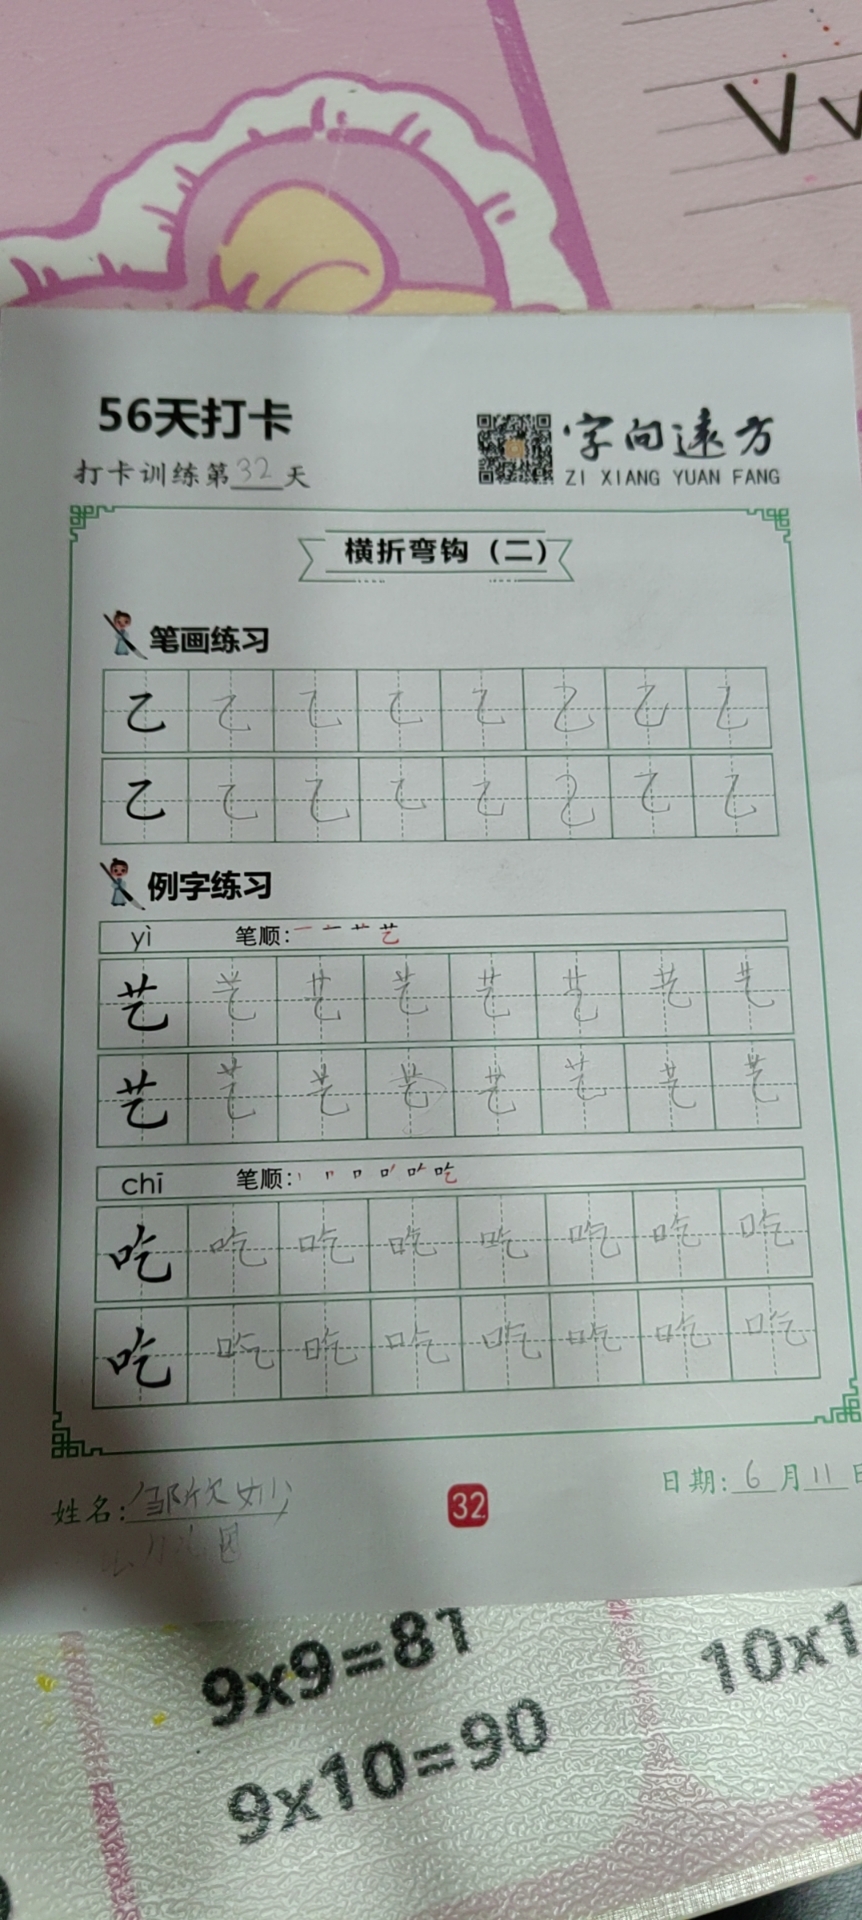 V v
56天打卡
字向远方
打卡训练第32天
ZI XIANG YUAN FANG
横折弯钩（二）
笔画练习
乙 乙 乙 乙 乙 乙 乙 乙
乙 乙 乙 乙 乙 乙 乙 乙
例字练习
yì 笔顺: 一 艹 艺
艺 艺 艺 艺 艺 艺 艺 艺
艺 艺 艺 艺 艺 艺 艺 艺
chī 笔顺: 丨 口 吃
吃 吃 吃 吃 吃 吃 吃 吃
吃 吃 吃 吃 吃 吃 吃 吃
姓名: 邹欣妙
32
日期: 6月11日
9x9=81
10x1
9x10=90